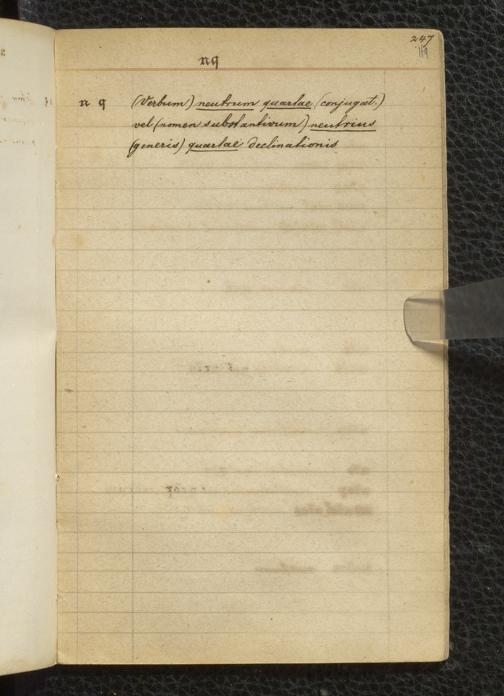 247
119
nq
n q (Verbum) neutrum quartae (conjugat.)
vel (nomen substantivum) neutrius
(generis) quartae declinationis